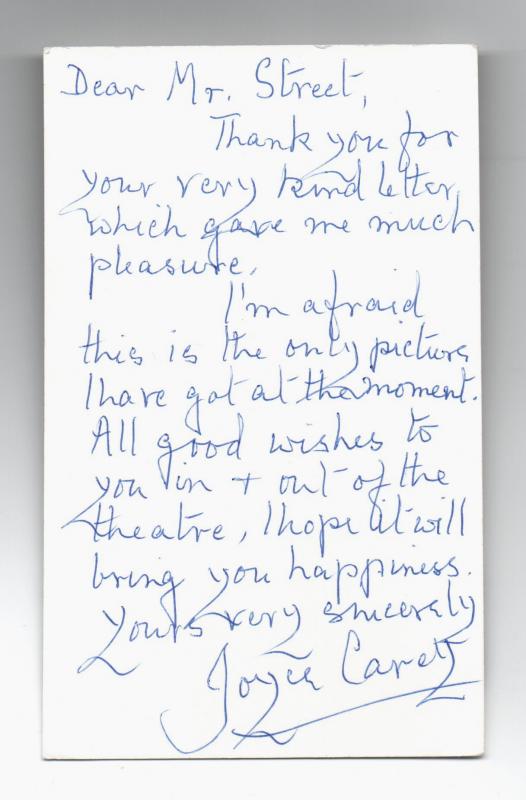 Dear Mr. Street,
Thank you for
your very kind letter
which gave me much
pleasure.
I'm afraid
this is the only picture
I have got at the moment.
All good wishes to
you in + out of the
theatre, I hope it will
bring you happiness.
Yours very sincerely
Joyce Carey